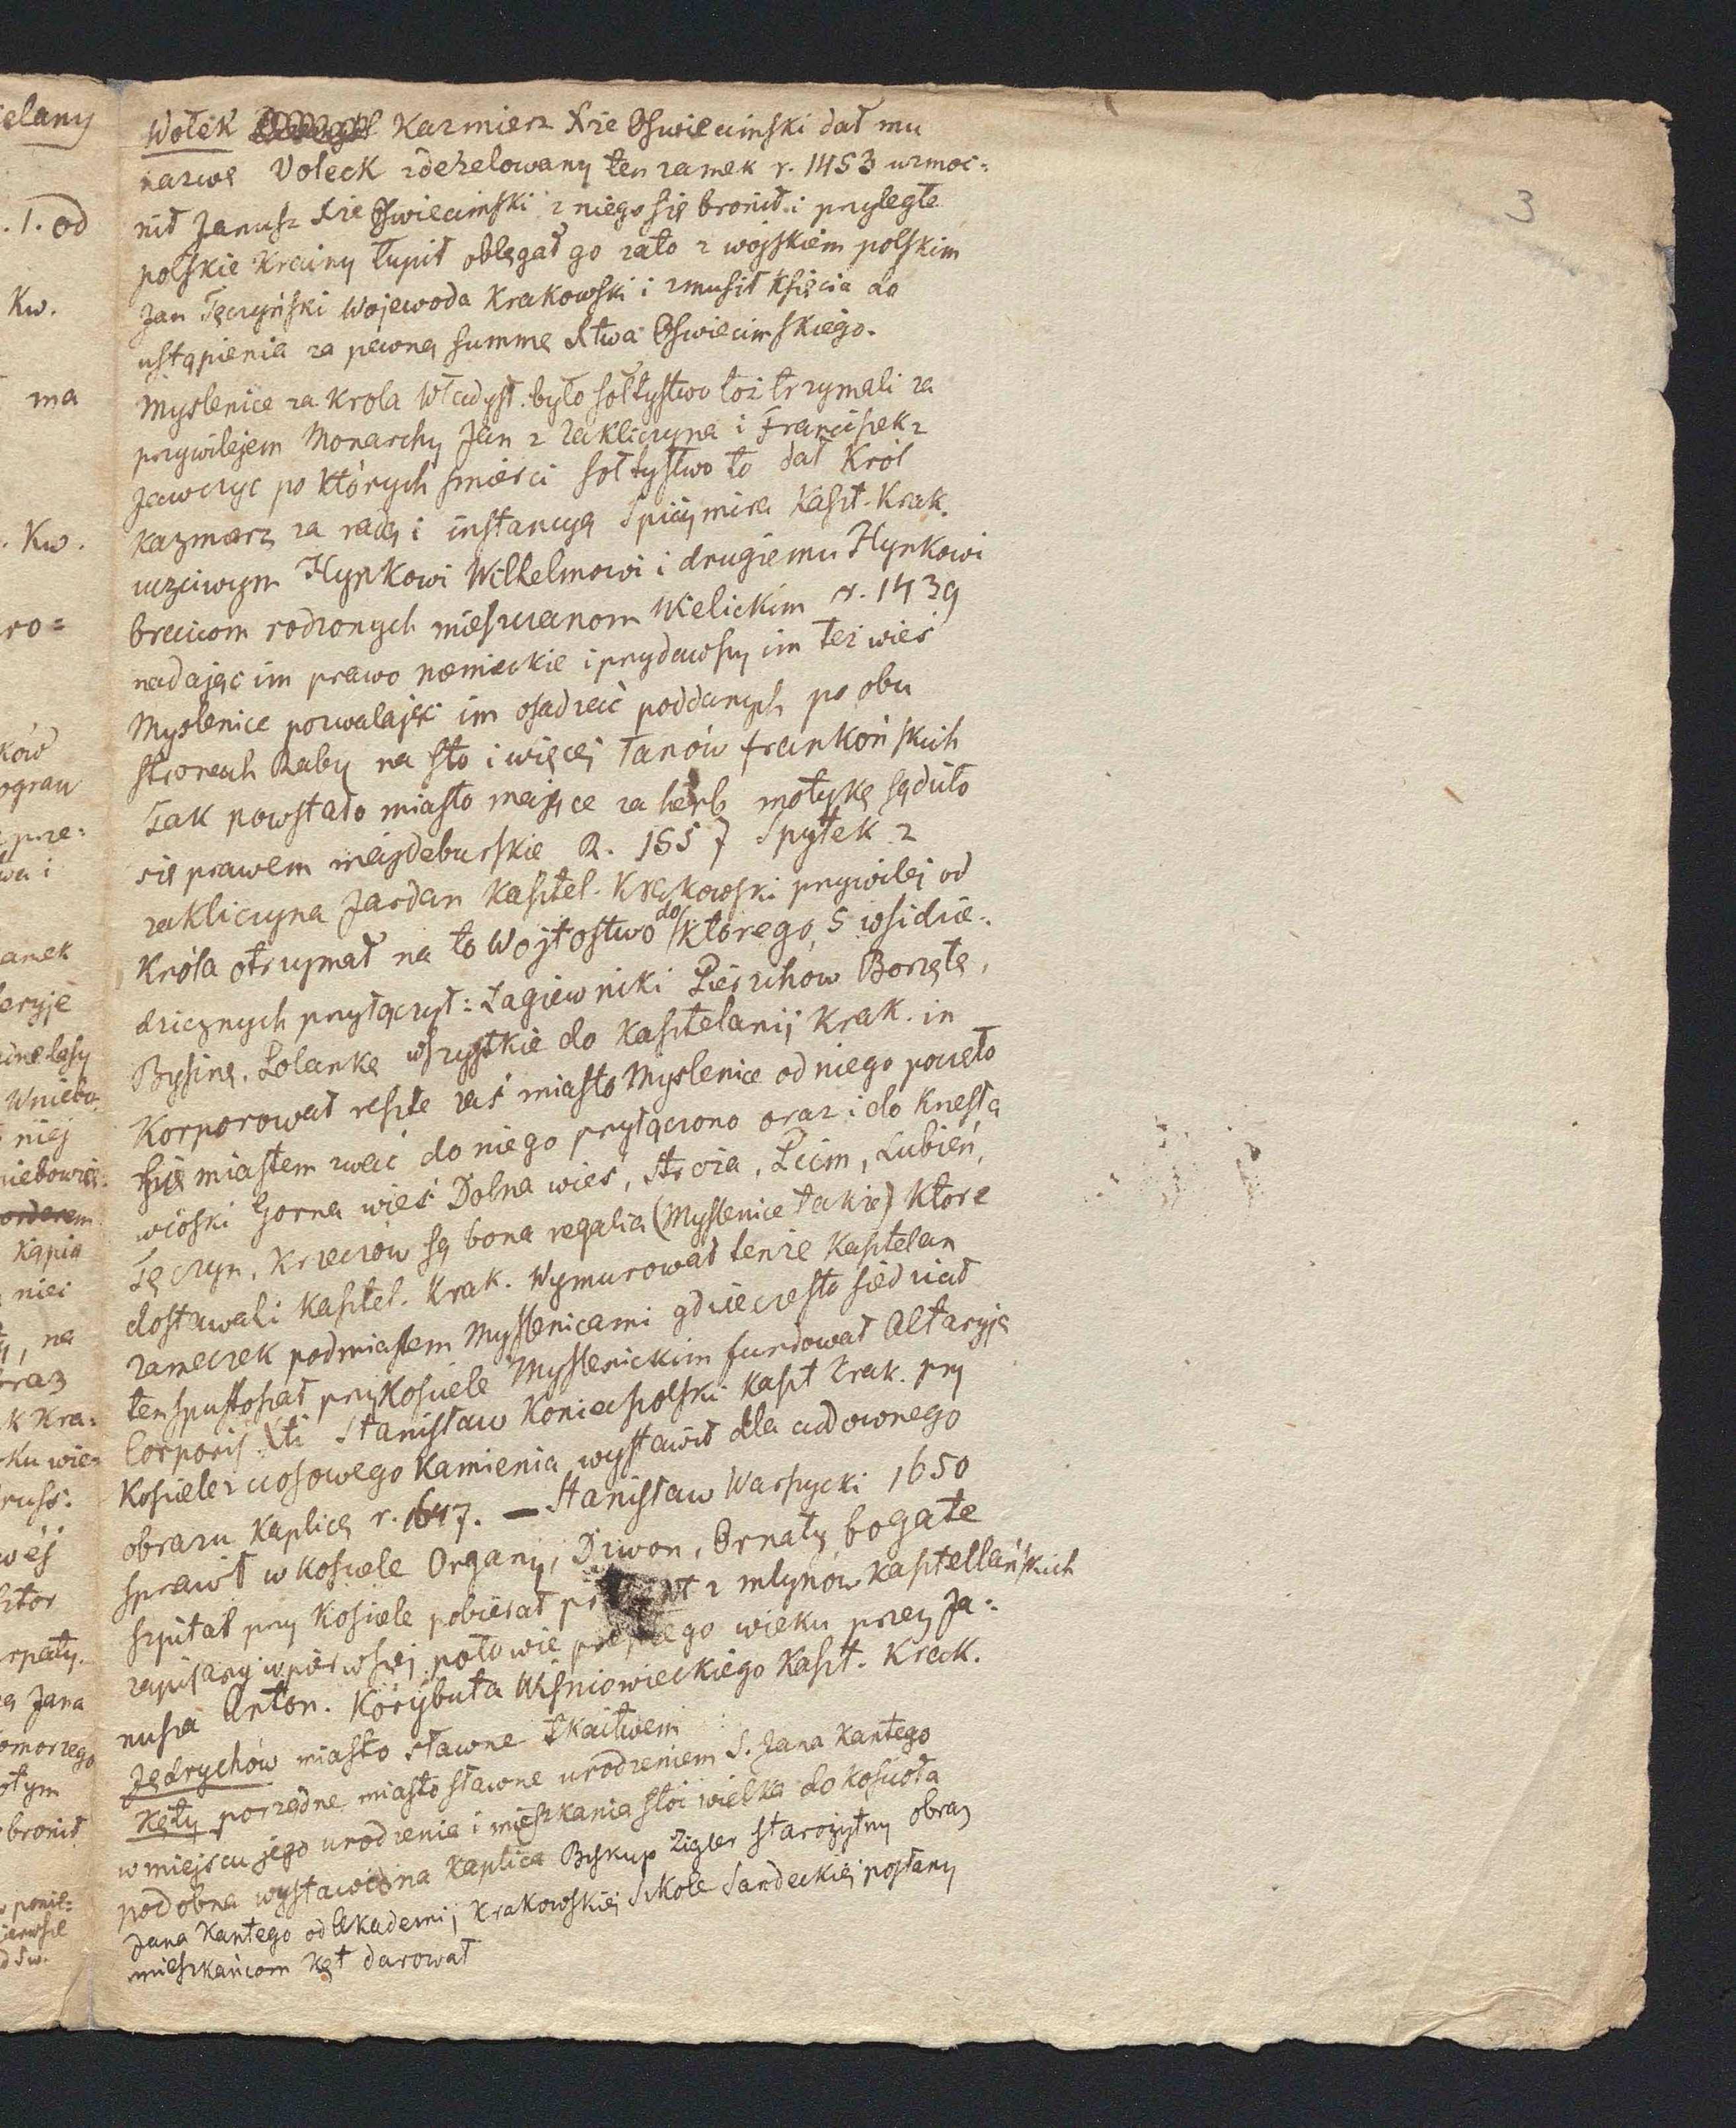 3
Wołek Kazmierz Xże Oswiecimski dał mu
nazwę Voleck zdezelowany ten zamek r. 1453 wzmoc=
nił Janusz Xże Oswiecimski z niego się bronił i przyległe
polskie Krainy łupił oblęgał go zato z wojskiem polskim
Jan Tęczyński Wojewoda Krakowski i zmusił Xsięcia do
ustąpienia za pewną summę Xtwa Oswiecimskiego.
Myslenice za Krola Władysł. było sołtystwo toż trzymali za
przywilejem Monarchy Jan z Zakliczyna i Franciszek z
Jawczyc po których smierci sołtystwo to dał Król
Kazmierz za radą i instancyą Spicymira Kaszt. Krak.
uczciwym Hynkowi Wilhelmowi i drugiemu Hynkowi
braciom rodzonych mieszczanom Wielickim r. 1439
nadając im prawo niemieckie i przydawszy im też wieś
Myslenice pozwalając im osadzać poddanych po obu
stronach Raby na sto i więcej Łanów frankońskich
Tak powstało miasto mające za herb motykę sądziło
się prawem majdeburskie R. 1557 Spytek z
zakliczyna Jordan Kasztel. Krakowski przywilej od
Króla otrzymał na to Wojtostwo do którego 5 wsi dzie=
dzicznych przyłączył: Łagiewniki Pierzchow Borzętę,
Bysinę, Polankę wszystkie do Kasztelanij Krak. in
Korporował reszte zaś miasto Myslenice od niego poczęło
się miastem zwać do niego przyłączono oraz i do Kneszta
wioski Gorna wieś Dolna wieś, Stroża, Pcim, Lubień,
Tęczyn, Krzeczów są bona regalia (Myslenice także) Ktore
dostawali Kasztel. Krak. Wymurował tenże Kasztelan
zameczek podmiastem Myslenicami gdzie czesto siedział
ten spustoszał przy Kosciele Myslenickim fundował Altaryję
Corporis Xti Stanisław Koniecpolski Kaszt Krak. przy
Kosciele z ciosowego Kamienia wystawił dla cudownego
obrazu Kaplicę r. 1647. — Stanisław Warszycki 1650
sprawił w kosciele Organy, Dzwon, Ornaty bogate
szpital przy Kosciele pobierał z mlynów Kasztellańskich
zapisany w pierwszej połowie wieku przez Ja=
nusza Anton. Korybuta Wiśniowieckiego Kaszt. Krak.
Jędrychów miasto sławne tkactwem
Kęty porządne miasto sławne urodzeniem S. Jana Kantego
w miejscu jego urodzenia i mieszkania stoi wielka do koscioła
podobna wystawiona Kaplica Biskup Zigler starożytny obraz
Jana Kantego od Akademij Krakowskiej Szkole Sandeckiej posłany
mieszkańcom Kęt darował